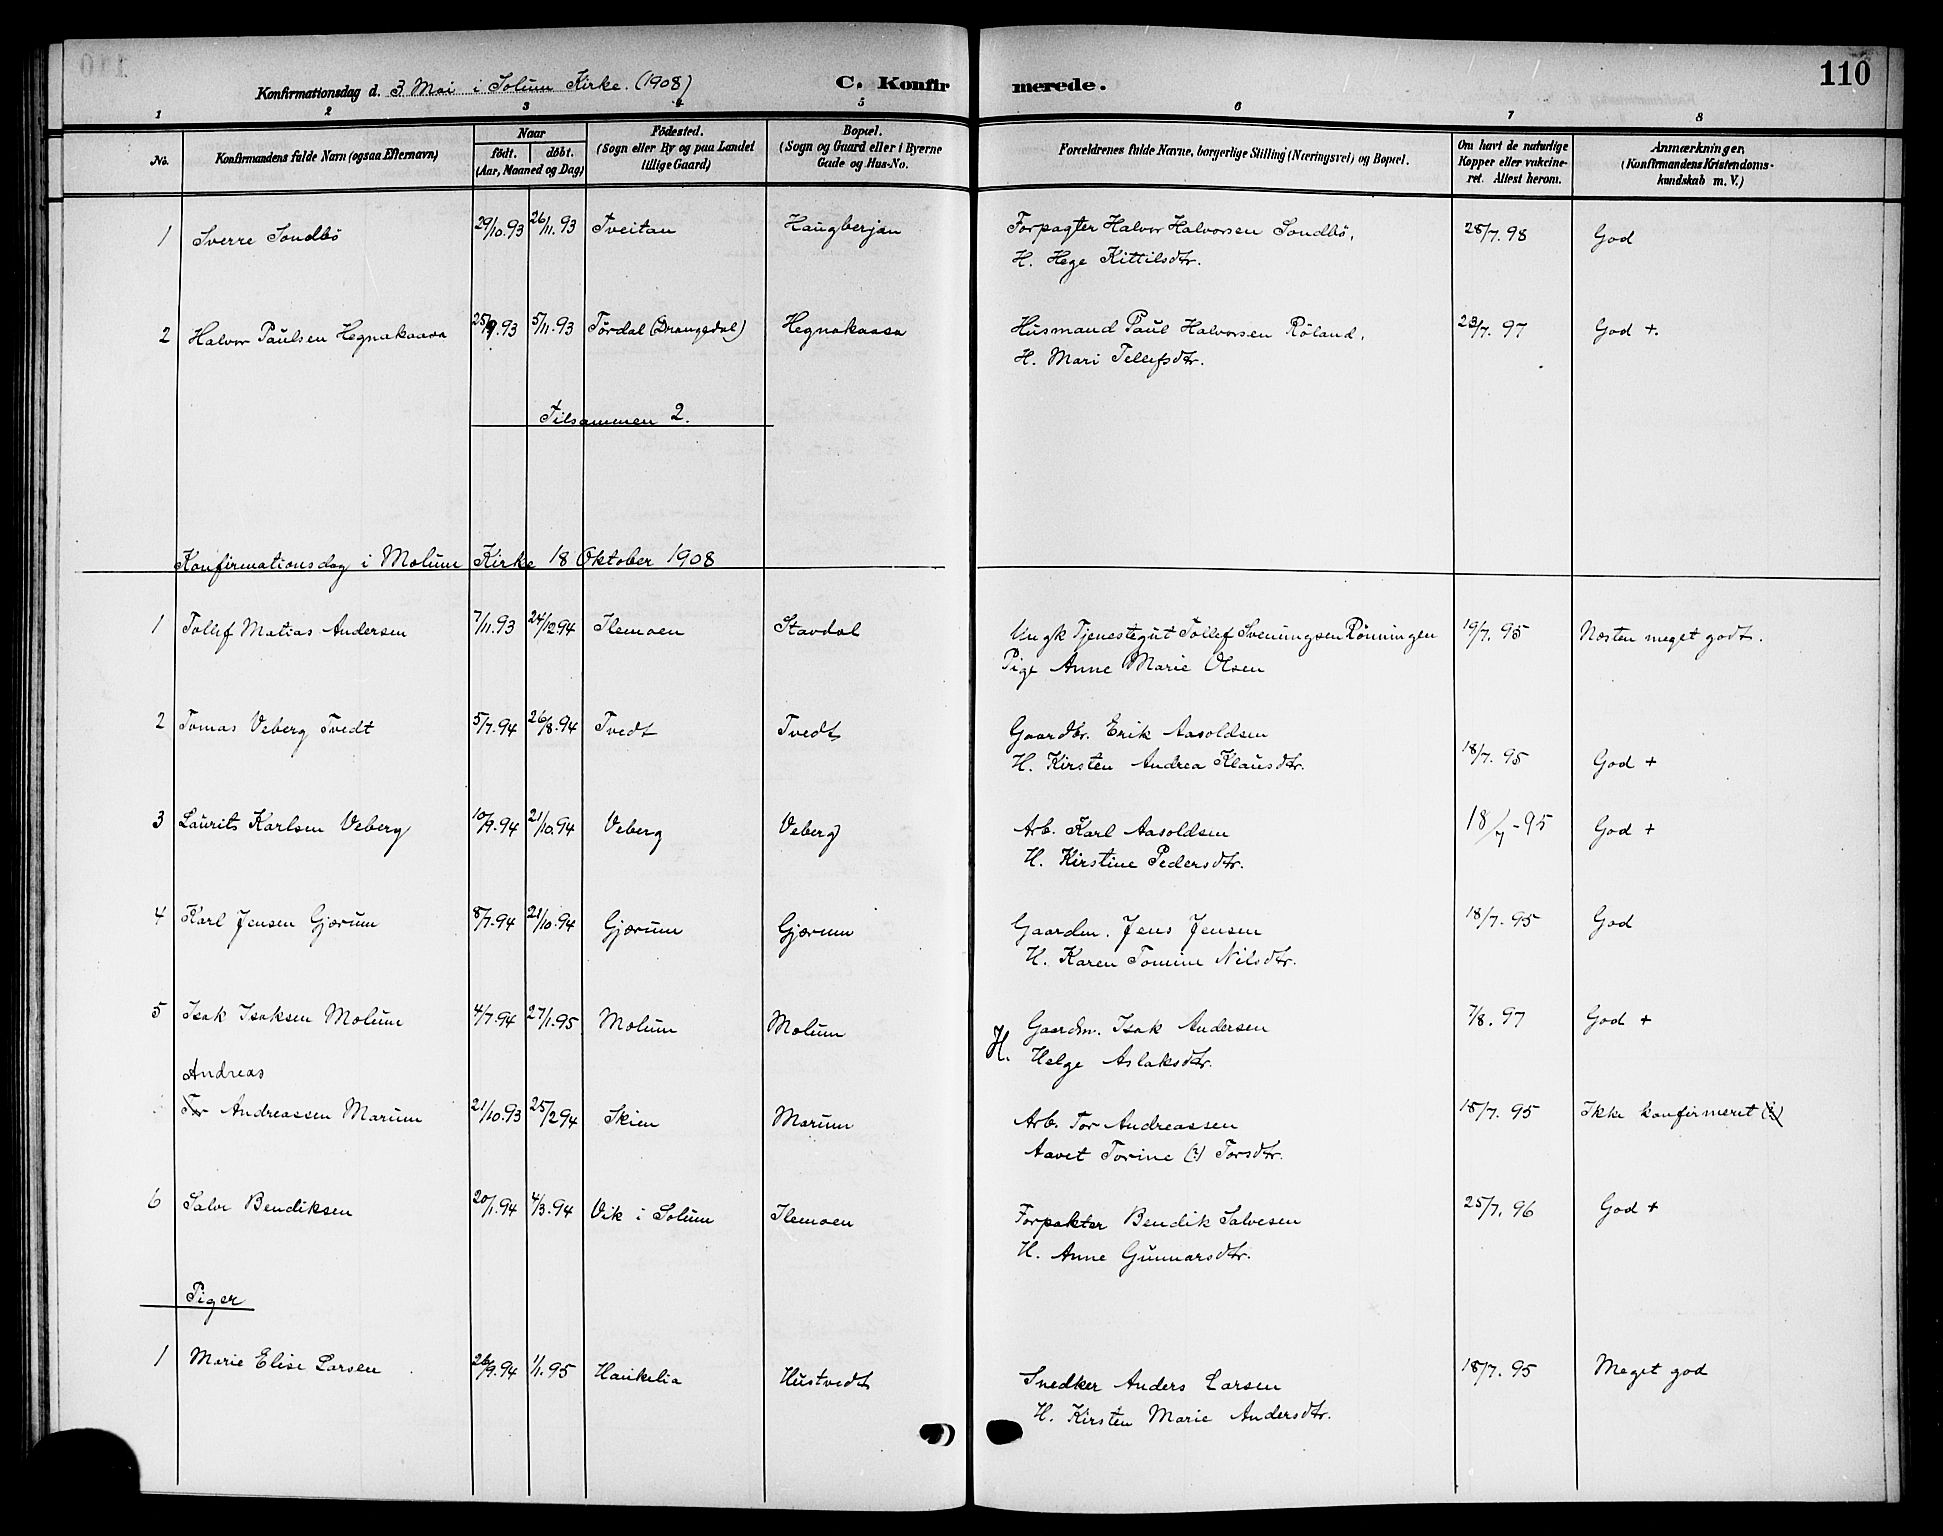 110
Konfirmationsdag d. 3 Mai i Solum Kirke. (1908) C. Konfirmerede.
1 2 3 4 5 6 7 8
No. Konfirmandens fulde Navn (ogsaa Efternavn) Naar født. døbt. (Aar, Maaned og Dag) Fødested. (Sogn eller By og paa Landet tillige Gaard) Bopæl. (Sogn og Gaard eller i Byerne Gade og Hus-No. Forældrenes fulde Navne, borgerlige Stilling (Næringsvei) og Bopæl. Om havt de naturlige Kopper eller vakcineret. Attest herom. Anmærkninger. (Konfirmandens Kristendomskundskab m. V.)
1 Sverre Sondbø 29/10.93 26/11.93 Tveitan Haugberjan Forpagter Halvor Halvorsen Sondbø, 28/7.98 God
H. Hege Kittilsdtr.
2 Halvor Paulsen Hegnakaasa 25/9.93 5/11.93 Tørdal (Drangedal) Hegnakaasa Husmand Paul Halvorsen Røland, 23/7.97 God +.
H. Mari Tellefsdtr.
Tilsammen 2.
Konfirmationsdag i Melum Kirke 18 Oktober 1908
1 Tollef Matias Andersen 7/11.93 24/12.94 Ilemoen Stavdal Ungk Tjenestegut Tollef Sveningsen Rønningen 19/7.95 Næsten meget godt.
Pige Anne Marie Olsen
2 Tomas Veberg Tvedt 5/7.94 26/8.94 Tvedt Tvedt Gaardbr. Erik Aasoldsen
H. Kirsten Andrea Klausdtr. 18/7.95 God +
3 Laurits Karlsen Veberg 10/9.94 21/10.94 Veberg Veberg Arb. Karl Aasoldsen 18/7-95 God +
H. Kirstine Pedersdtr.
4 Karl Jensen Gjærum 8/7.94 21/10.94 Gjærum Gjærum Gaardm. Jens Jensen 18/7.95 God
H. Karen Tomine Nilsdtr.
5 Isak Isaksen Mælum 4/7.94 27/1.95 Mælum Mælum Gaardm. Isak Andersen 7/8.97 God +
H. Helge Aslaksdtr.
Andreas
Tor Andreassen Marum 21/10.93 25/2.94 Skien Marum Arb. Tor Andreassen 18/7.95 Ikke konfirmeret
Aavet Torine (?) Torsdtr.
6 Salve Bendiksen 20/1.94 4/3.94 Vik i Solum Ilemoen Forpakter Bendik Salvesen 25/7.96 God +
H. Anne Gunnarsdtr.
Piger
1 Marie Elise Larsen 26/9.94 1/1.95 Haukelia Hustvedt Snedker Anders Larsen 18/7.95 Meget god
H. Kirsten Marie Andersdtr.